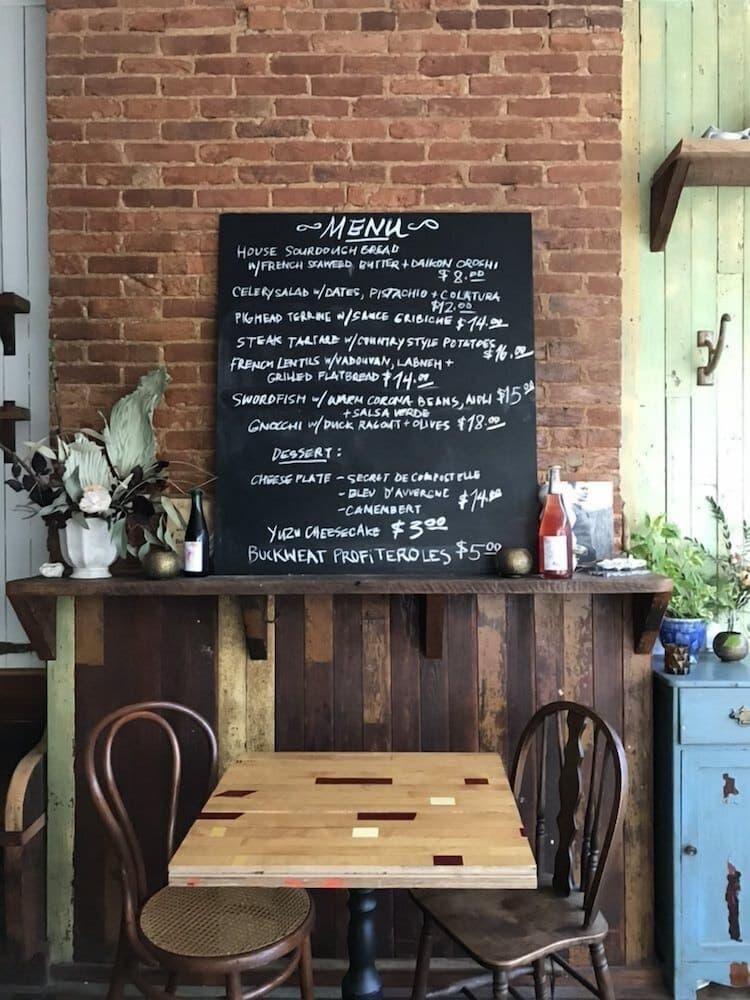 ~MENU~
HOUSE SOURDOUGH BREAD
W/FRENCH SEAWEED BUTTER + DAIKON OROSHI
$8.00
CELERY SALAD W/DATES, PISTACHIO + COLATURA
$12.00
PIGHEAD TERRINE W/SAUCE GRIBICHE $14.00
STEAK TARTARE W/COUNTRY STYLE POTATOES
$16.00
FRENCH LENTILS W/VADOUVAN, LABNEH +
GRILLED FLATBREAD $14.00
SWORDFISH W/WARM CORONA BEANS, AIOLI $15.00
+ SALSA VERDE
GNOCCHI W/DUCK RAGOUT + OLIVES $18.00
DESSERT:
CHEESE PLATE - SECRET DE COMPOSTELLE
- BLEU D'AUVERGNE $14.00
- CAMEMBERT
YUZU CHEESECAKE $3.00
BUCKWEAT PROFITEROLES $5.00